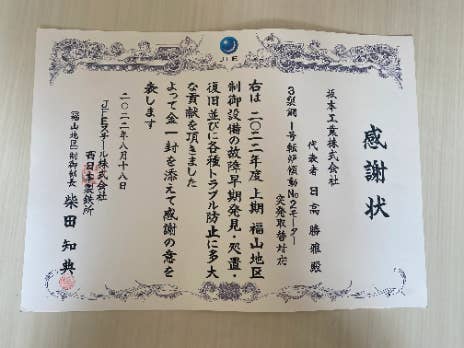 JFE
感謝状
坂本工業株式会社
代表者 日高勝雅殿
3製鋼1号転炉傾動No2モーター
突発取替対応
右は二〇二二年度上期福山地区
制御設備の故障早期発見・処置・
復旧並びに各種トラブル防止に多大
な貢献を頂きました
よって金一封を添えて感謝の意を
表します
二〇二二年八月十八日
JFEスチール株式会社
西日本製鉄所
(福山地区)制御部長 柴田知典